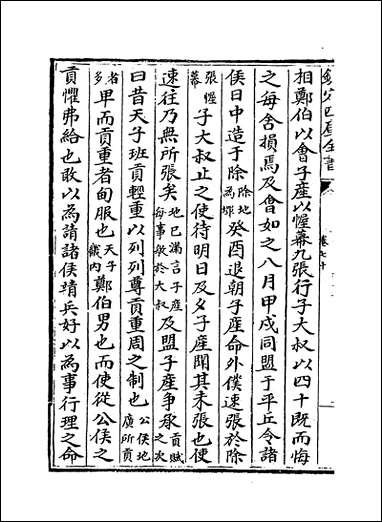 欽定四庫全書
卷七十
相鄭伯以會子産以幄幕九張行子大叔以四十既而悔
之每舍損焉及會如之八月甲戌同盟于平丘令諸
侯日中造于除除地為壇癸酉退朝子産命外僕速張於除
張幄幕子大叔止之使待明日及夕子産聞其未張也使
速往乃無所張矣地已滿言子産每事敏於大叔及盟子産争承貢賦之次
曰昔天子班貢輕重以列列尊貢重周之制也公侯地廣所貢
者多卑而貢重者甸服也天子畿内鄭伯男也而使從公侯之
貢懼弗給也敢以為請諸侯靖兵好以為事行理之命